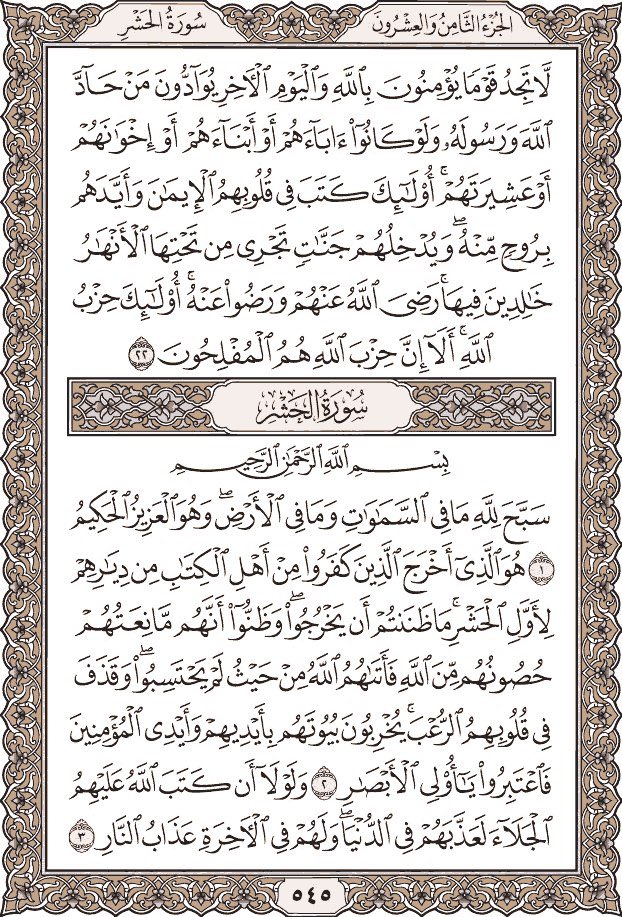 الجزء الثامن والعشرون
سورة الحشر
لَّا تَجِدُ قَوْمًا يُؤْمِنُونَ بِاللَّهِ وَالْيَوْمِ الْآخِرِ يُوَادُّونَ مَنْ حَادَّ
اللَّهَ وَرَسُولَهُ وَلَوْ كَانُوا آبَاءَهُمْ أَوْ أَبْنَاءَهُمْ أَوْ إِخْوَانَهُمْ
أَوْ عَشِيرَتَهُمْ ۚ أُولَٰئِكَ كَتَبَ فِي قُلُوبِهِمُ الْإِيمَانَ وَأَيَّدَهُم
بِرُوحٍ مِّنْهُ ۖ وَيُدْخِلُهُمْ جَنَّاتٍ تَجْرِي مِن تَحْتِهَا الْأَنْهَارُ
خَالِدِينَ فِيهَا ۚ رَضِيَ اللَّهُ عَنْهُمْ وَرَضُوا عَنْهُ ۚ أُولَٰئِكَ حِزْبُ
اللَّهِ ۚ أَلَا إِنَّ حِزْبَ اللَّهِ هُمُ الْمُفْلِحُونَ ٢٢
سورة الحشر
بِسْمِ اللَّهِ الرَّحْمَٰنِ الرَّحِيمِ
سَبَّحَ لِلَّهِ مَا فِي السَّمَاوَاتِ وَمَا فِي الْأَرْضِ ۖ وَهُوَ الْعَزِيزُ الْحَكِيمُ
١ هُوَ الَّذِي أَخْرَجَ الَّذِينَ كَفَرُوا مِنْ أَهْلِ الْكِتَابِ مِن دِيَارِهِمْ
لِأَوَّلِ الْحَشْرِ ۚ مَا ظَنَنتُمْ أَن يَخْرُجُوا ۖ وَظَنُّوا أَنَّهُم مَّانِعَتُهُمْ
حُصُونُهُم مِّنَ اللَّهِ فَأَتَاهُمُ اللَّهُ مِنْ حَيْثُ لَمْ يَحْتَسِبُوا ۖ وَقَذَفَ
فِي قُلُوبِهِمُ الرُّعْبَ ۚ يُخْرِبُونَ بُيُوتَهُم بِأَيْدِيهِمْ وَأَيْدِي الْمُؤْمِنِينَ
فَاعْتَبِرُوا يَا أُولِي الْأَبْصَارِ ٢ وَلَوْلَا أَن كَتَبَ اللَّهُ عَلَيْهِمُ
الْجَلَاءَ لَعَذَّبَهُمْ فِي الدُّنْيَا ۖ وَلَهُمْ فِي الْآخِرَةِ عَذَابُ النَّارِ ٣
٥٤٥